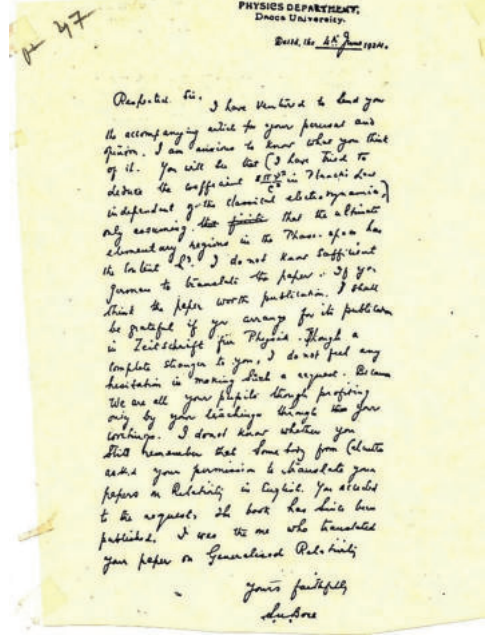 PHYSICS DEPARTMENT,
Dacca University.
Dacca, the 4th June 1924.
Respected Sir, I have ventured to send you
the accompanying article for your perusal and
opinion. I am anxious to know what you think
of it. You will see that I have tried to
deduce the coefficient 8πν²/c³ in Planck's Law
independent of the classical electrodynamics,
only assuming that the ultimate
elementary regions in the Phase-space has
the content h³. I do not know sufficient
German to translate the paper. If you
think the paper worth publication, I shall
be grateful if you arrange for its publication
in Zeitschrift für Physik. Though a
complete stranger to you, I do not feel any
hesitation in making such a request. Because
we are all your pupils though profiting
only by your teachings through your
writings. I do not know whether you
still remember that somebody from Calcutta
asked your permission to translate your
papers on Relativity in English. You acceded
to the request. The book has since been
published. I was the one who translated
your paper on Generalised Relativity
Yours faithfully
S.N. Bose